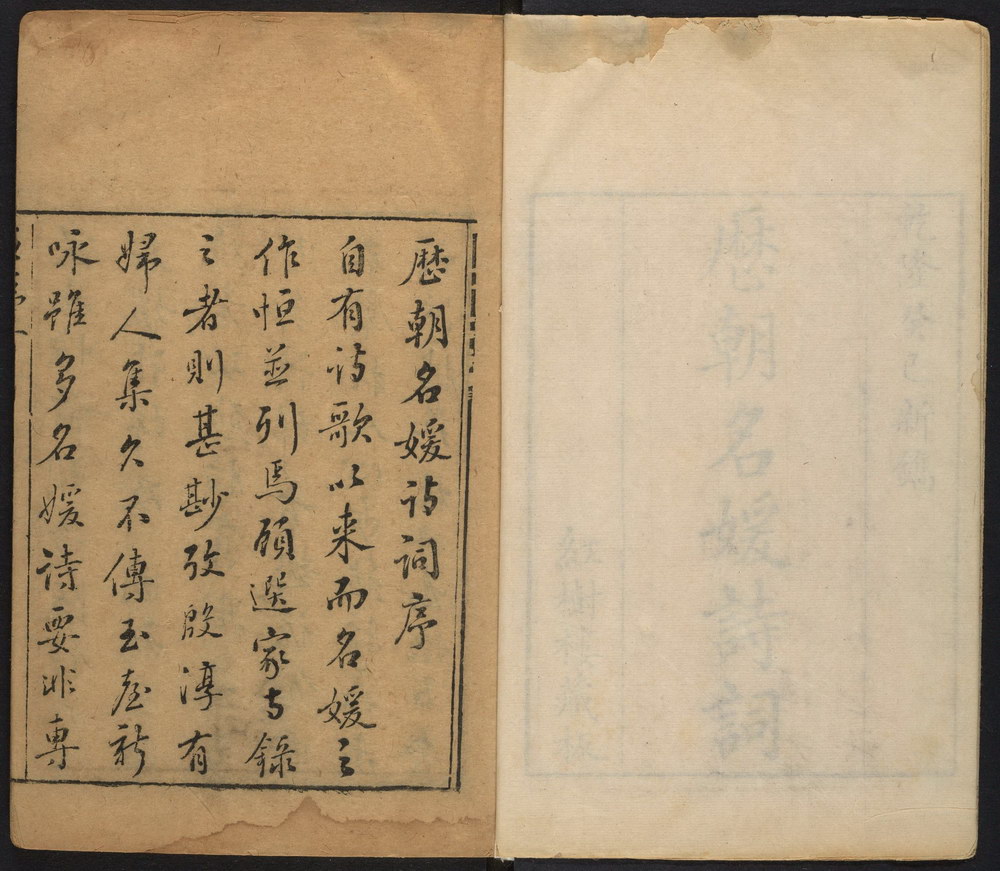 乾隆癸巳新鐫
歷朝名媛詩詞
紅樹樓藏板
歷朝名媛詩詞序
自有詩歌以来而名媛之
作恒並列焉顧選家專錄
之者則甚尠攷殷淳有
婦人集久不傳玉臺新
咏雖多名媛詩要非專